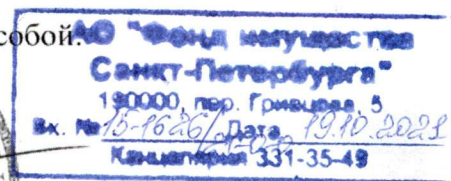 собой.
АО "Фонд имущества
Санкт-Петербурга"
190000, пер. Гривцова, 5
Вх. № 15-1626/ Дата 19.10.2021
Канцелярия 331-35-49